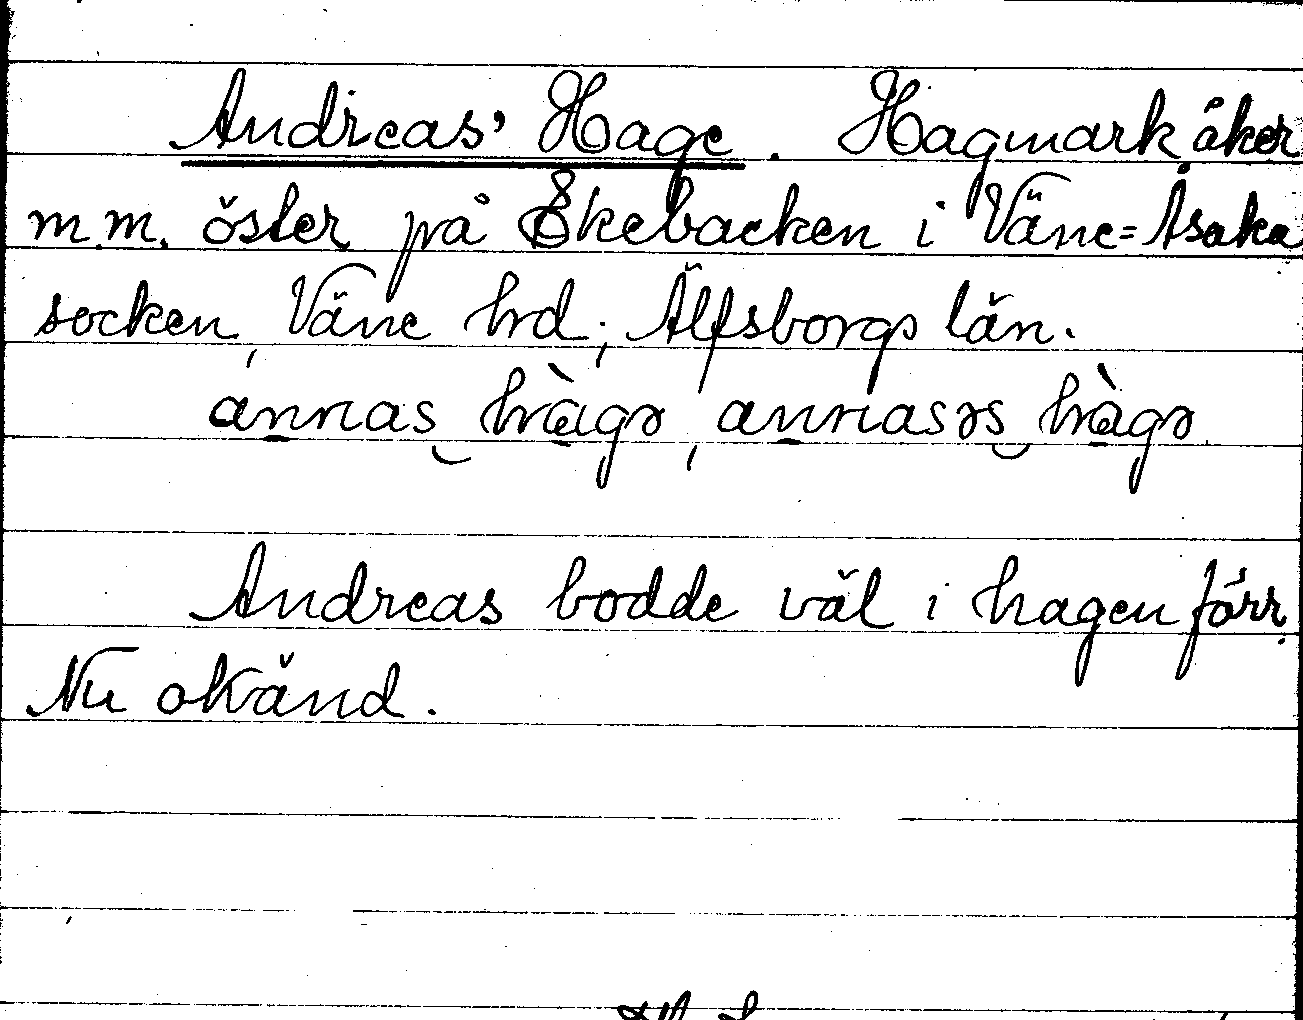 Andreas' Hage. Hagmark, åker
m.m. öster på Ekebacken i Väne=Åsaka
socken, Väne hrd; Älfsborgs län.
annas hàgə, annasəs hàgə.
Andreas bodde väl i hagen förr.
Nu okänd.